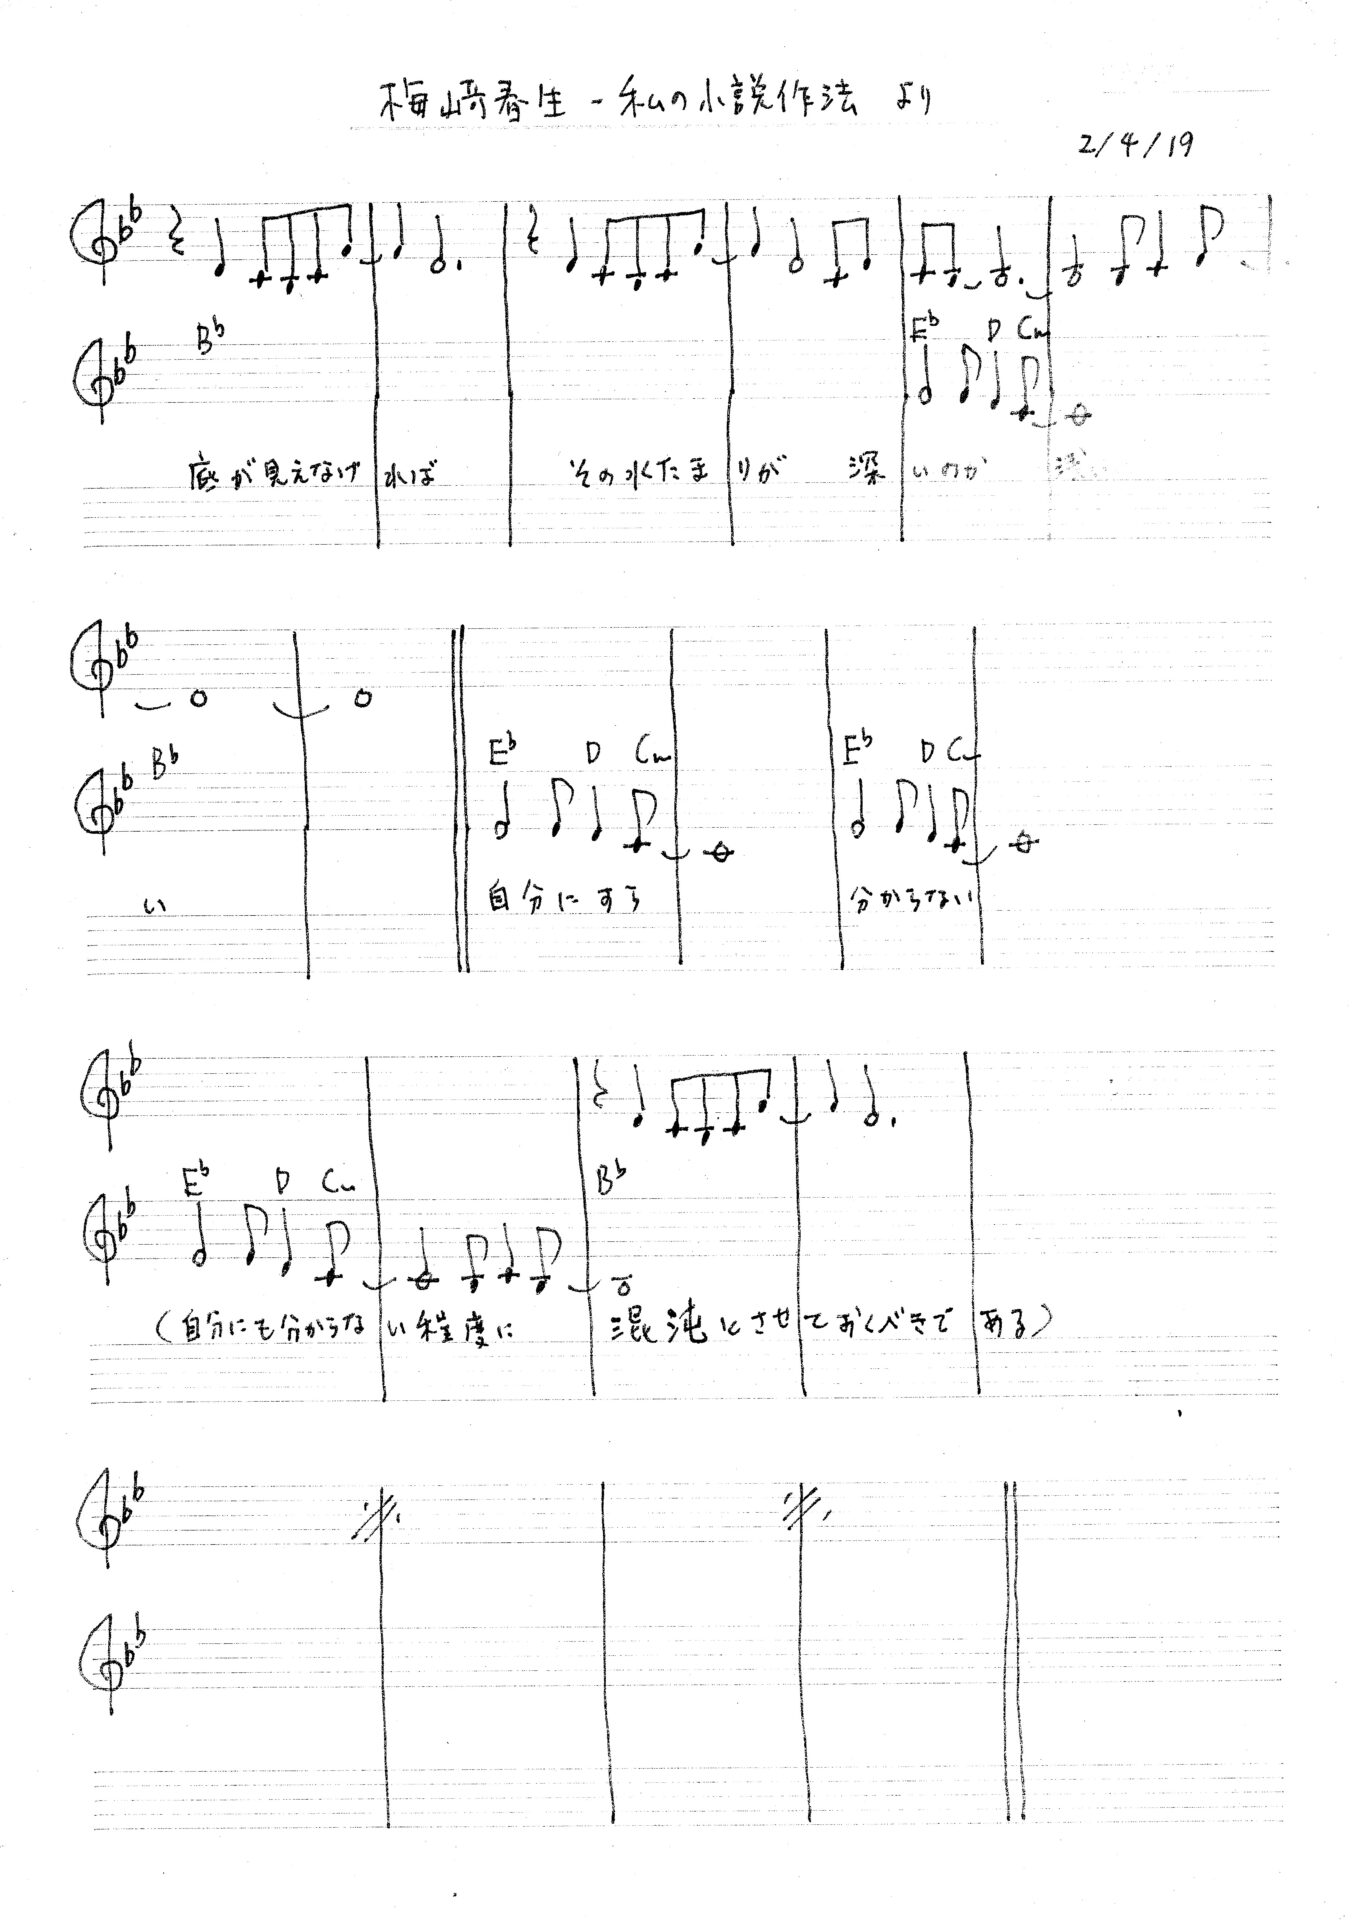 梅崎春生 - 私の小説作法 より
2/4/19
B♭
E♭ D Cm
底が見えなければ その水たまりが 深いのか 浅い
B♭
E♭ D Cm E♭ D Cm
い 自分にすら 分からない
E♭ D Cm B♭
(自分にも分からない程度に 混沌とさせておくべきである)